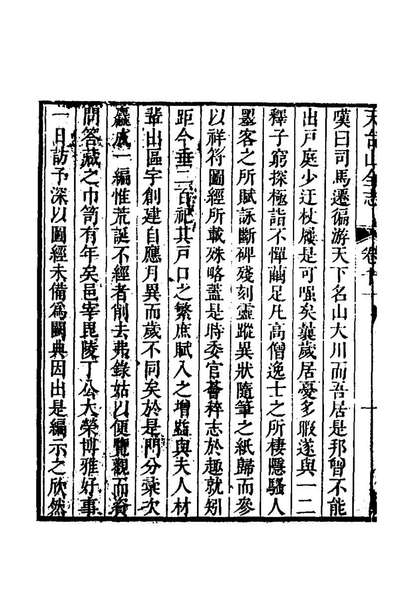 天台山全志 卷十
嘆曰司馬遷徧游天下名山大川而吾居是邦曾不能
出戸庭少迂杖屨是可嗤矣曩歲居憂多暇遂與一二
釋子窮探極詣不憚繭足凡高僧逸士之所棲隱騷人
墨客之所賦詠斷碑殘刻靈蹤異狀隨筆之紙歸而參
以祥符圖經所載殊略蓋是時委官薈稡志於趣就矧
距今垂二百祀其戸口之繁庶賦入之增益與夫人材
輩出區宇創建自應月異而歲不同矣於是門分彚次
成一編惟荒誕不經者削去弗錄姑以便覽觀而資
問答藏之巾笥有年矣邑宰毘陵丁公大榮博雅好事
一日訪予深以圖經未備爲闕典因出是編示之欣然